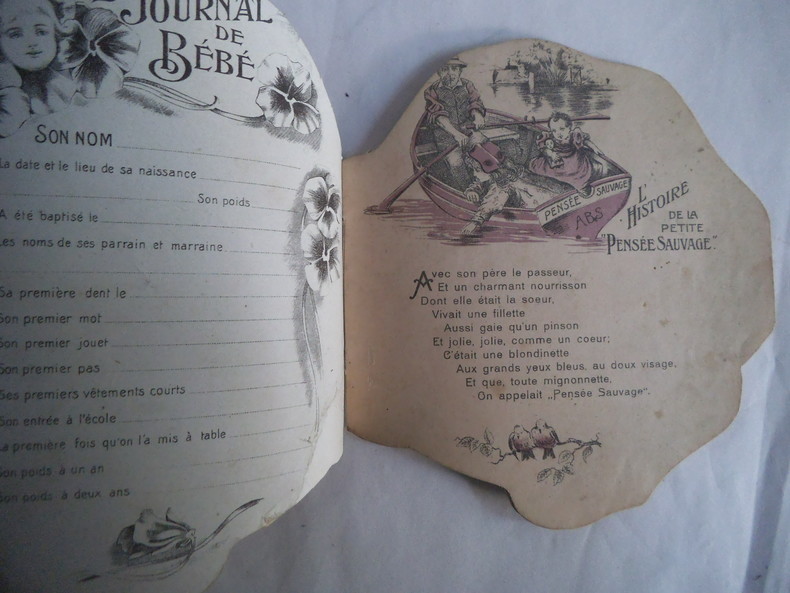 JOURNAL
DE
BÉBÉ
SON NOM
La date et le lieu de sa naissance
Son poids
A été baptisé le
Les noms de ses parrain et marraine
Sa première dent le
Son premier mot
Son premier jouet
Son premier pas
Ses premiers vêtements courts
Son entrée à l'école
La première fois qu'on l'a mis à table
Son poids à un an
Son poids à deux ans
PENSÉE SAUVAGE
A.B.S
L'HISTOIRE
DE LA
PETITE
"PENSÉE SAUVAGE".
Avec son père le passeur,
Et un charmant nourrisson
Dont elle était la soeur,
Vivait une fillette
Aussi gaie qu'un pinson
Et jolie, jolie, comme un coeur;
C'était une blondinette
Aux grands yeux bleus, au doux visage,
Et que, toute mignonnette,
On appelait „Pensée Sauvage".